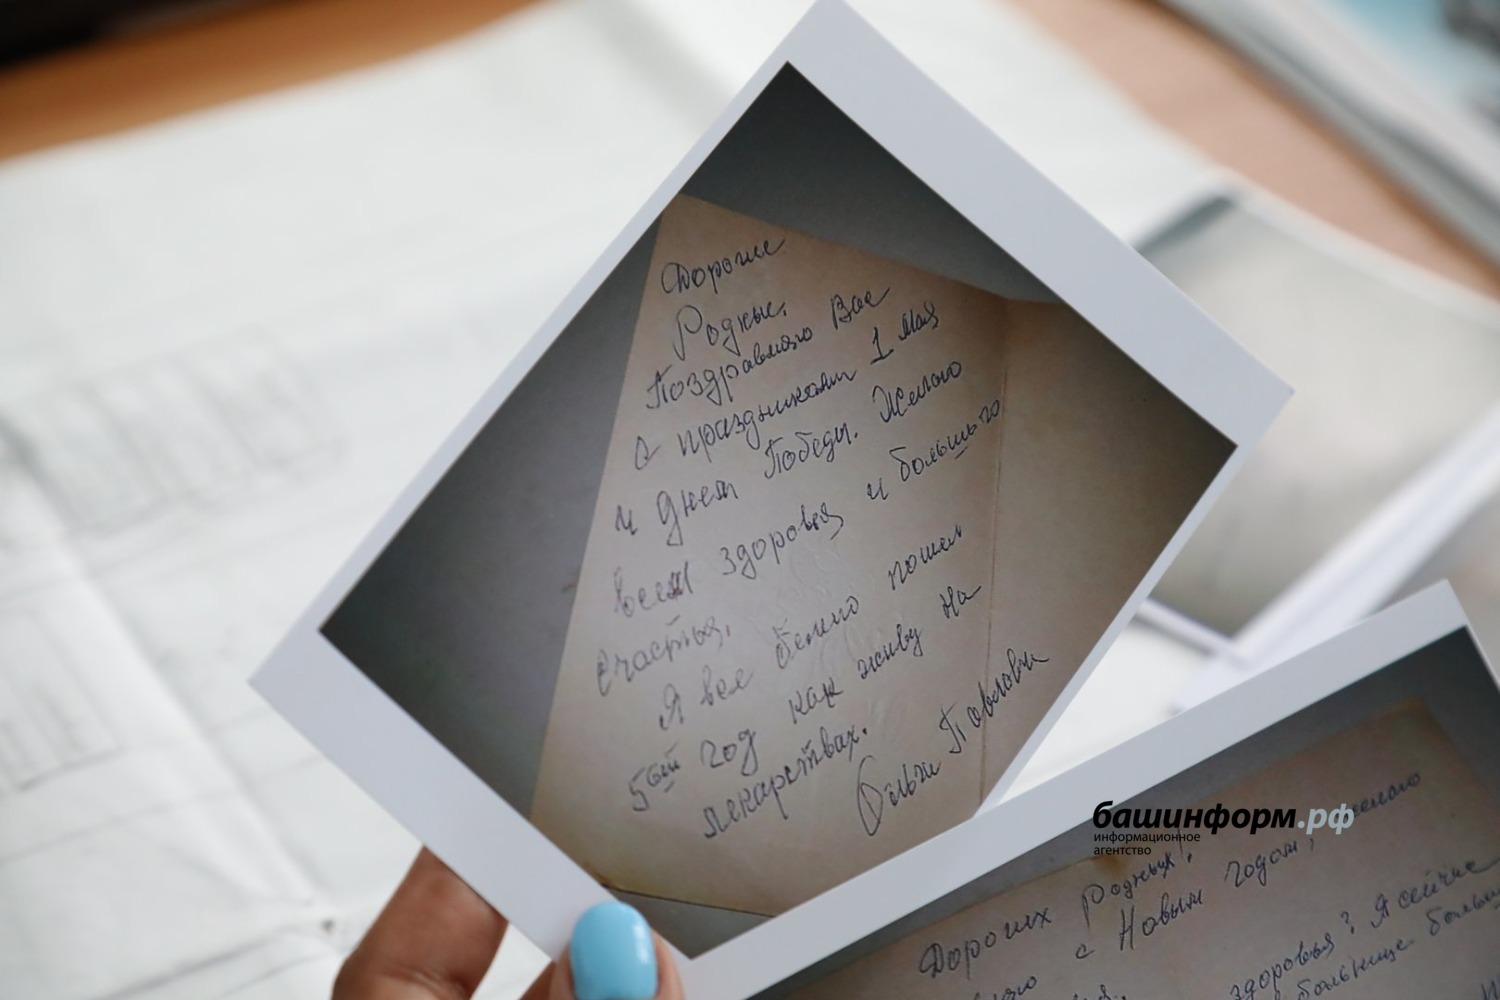 Дорогие
Родные.
Поздравляю Вас
с праздниками 1 мая
и днем Победы. Желаю
всем здоровья и большого
счастья.
Я все болею пошел
5ый год как живу на
лекарствах.
Ольга Павловна
башинформ.рф
информационное
агентство
Дорогих Родных! желаю
с Новым годом,
здоровья? Я сейчас
больнице